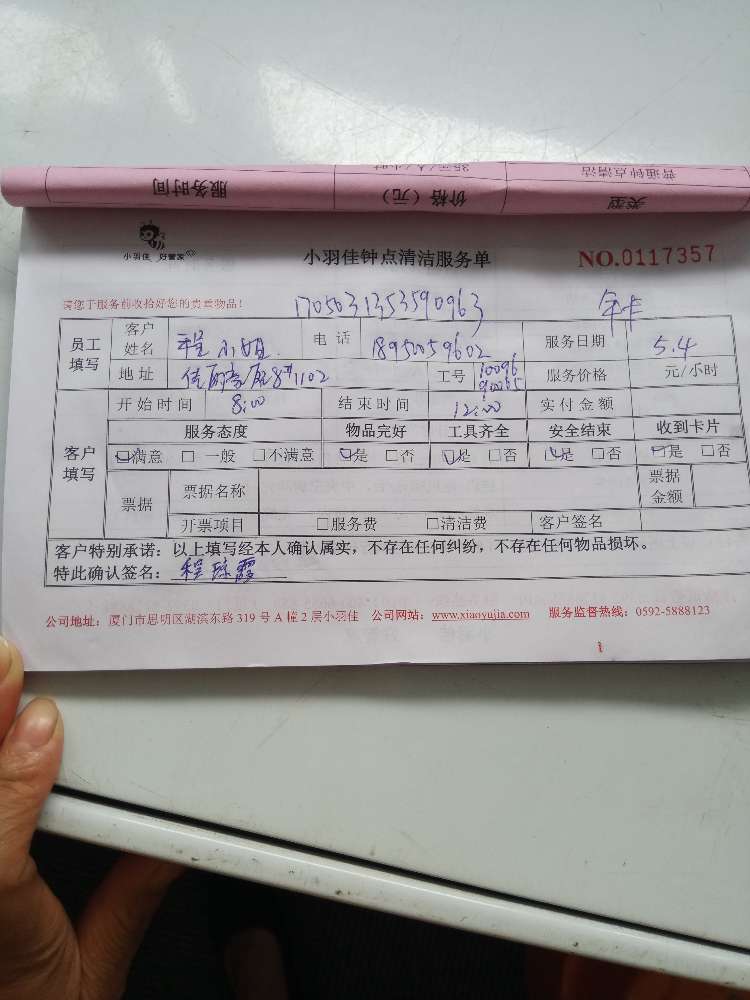 服务时间 价格（元） 类型
普通钟点清洁
小羽佳 好管家
小羽佳钟点清洁服务单 NO.0117357
请您于服务前收拾好您的贵重物品！
1705031353590963 年卡
员工填写 客户姓名 程小姐 电话 18950059602 服务日期 5.4
地址 佳丽豪庭8#1102 工号 10096 服务价格 元/小时
开始时间 8:00 结束时间 12:00 实付金额
客户填写 服务态度 物品完好 工具齐全 安全结束 收到卡片
☑满意 □一般 □不满意 ☑是 □否 ☑是 □否 ☑是 □否 ☑是 □否
票据 票据名称 票据金额
开票项目 □服务费 □清洁费 客户签名
客户特别承诺：以上填写经本人确认属实，不存在任何纠纷，不存在任何物品损坏。
特此确认签名：程琼霞
公司地址：厦门市思明区湖滨东路 319 号 A 幢 2 层小羽佳 公司网站：www.xiaoyujia.com 服务监督热线：0592-5888123